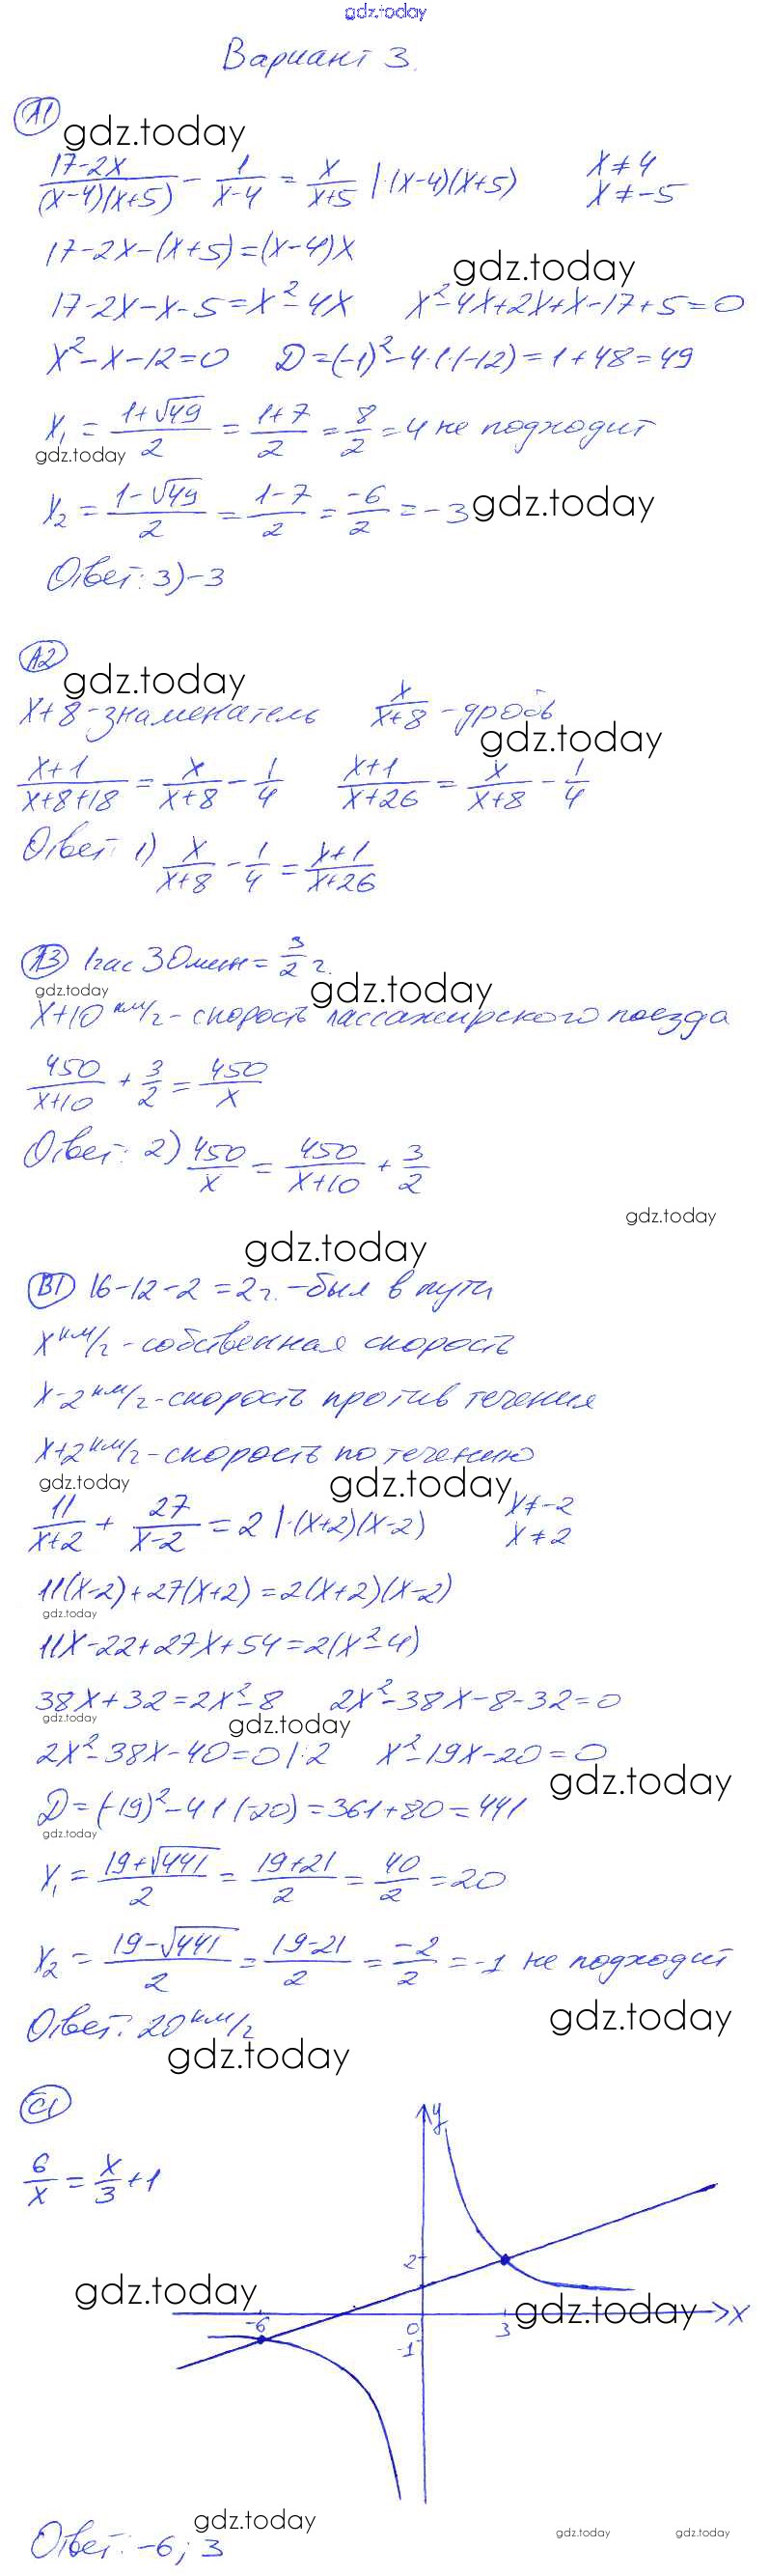 gdz.today
Вариант 3.
А1
gdz.today
(17-2x)/((x-4)(x+5)) - 1/(x-4) = x/(x+5) |·(x-4)(x+5)   x≠4
x≠-5
17-2x-(x+5)=(x-4)x
gdz.today
17-2x-x-5=x²-4x   x²-4x+2x+x-17+5=0
x²-x-12=0   D=(-1)²-4·1·(-12)=1+48=49
x₁ = (1+√49)/2 = (1+7)/2 = 8/2 = 4 не подходит
gdz.today
x₂ = (1-√49)/2 = (1-7)/2 = -6/2 = -3
gdz.today
Ответ: 3) -3
А2
gdz.today
x+8 - знаменатель   x/(x+8) - дробь
gdz.today
(x+1)/(x+8+18) = x/(x+8) - 1/4   (x+1)/(x+26) = x/(x+8) - 1/4
Ответ: 1) x/(x+8) - 1/4 = (x+1)/(x+26)
А3 1час 30мин = 3/2 г.
gdz.today
gdz.today
x+10 км/г - скорость пассажирского поезда
450/(x+10) + 3/2 = 450/x
Ответ: 2) 450/x = 450/(x+10) + 3/2
gdz.today
gdz.today
В1 16-12-2=2г. - был в пути
x км/г - собственная скорость
x-2 км/г - скорость против течения
x+2 км/г - скорость по течению
gdz.today
gdz.today
11/(x+2) + 27/(x-2) = 2 |·(x+2)(x-2)   x≠-2
x≠2
11(x-2)+27(x+2)=2(x+2)(x-2)
gdz.today
11x-22+27x+54=2(x²-4)
38x+32=2x²-8   2x²-38x-8-32=0
gdz.today
gdz.today
2x²-38x-40=0 |:2   x²-19x-20=0
gdz.today
D=(-19)²-4·1·(-20)=361+80=441
gdz.today
x₁ = (19+√441)/2 = (19+21)/2 = 40/2 = 20
x₂ = (19-√441)/2 = (19-21)/2 = -2/2 = -1 не подходит
gdz.today
Ответ: 20 км/г
gdz.today
С1
y
6/x = x/3 + 1
2
gdz.today
gdz.today
x
-6
0
3
-1
gdz.today
Ответ: -6; 3
gdz.today
gdz.today